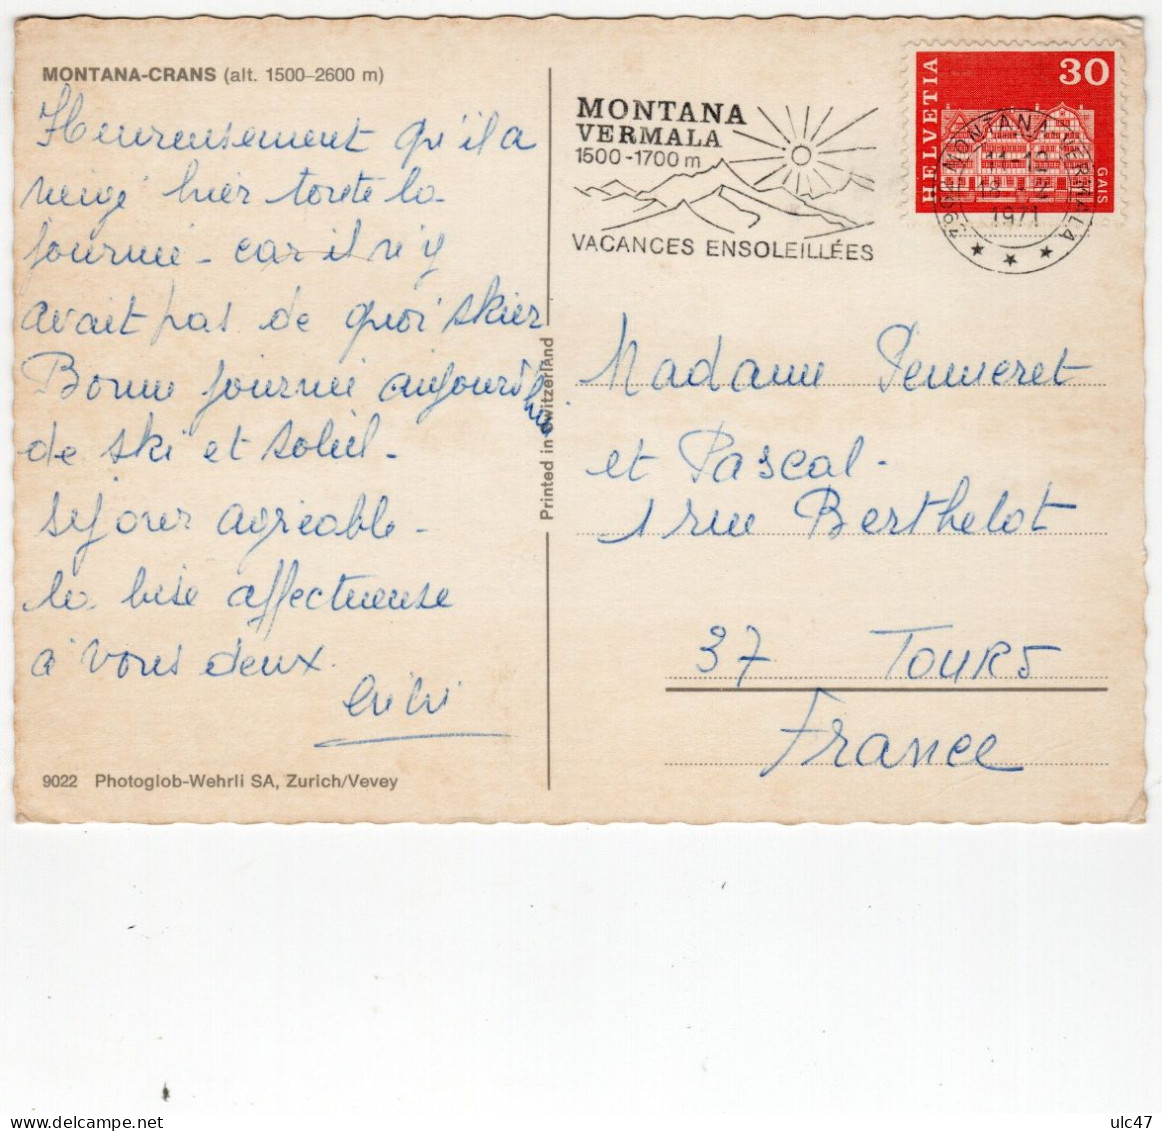 MONTANA-CRANS (alt. 1500-2600 m)
Heureusement qu'il a
neigé hier toute la
journée - car il n'y
avait pas de quoi skier
Bonne journée aujourd'hui
de ski et soleil -
séjour agréable -
la bise affectueuse
à vous deux.
CriCri
9022 Photoglob-Wehrli SA, Zurich/Vevey
Printed in Switzerland
MONTANA
VERMALA
1500-1700 m
VACANCES ENSOLEILLÉES
HELVETIA
30
GAIS
3962 MONTANA-VERMALA
11-12
1971
Madame Penneret
et Pascal -
1 rue Berthelot
37 TOURS
France
ulc47